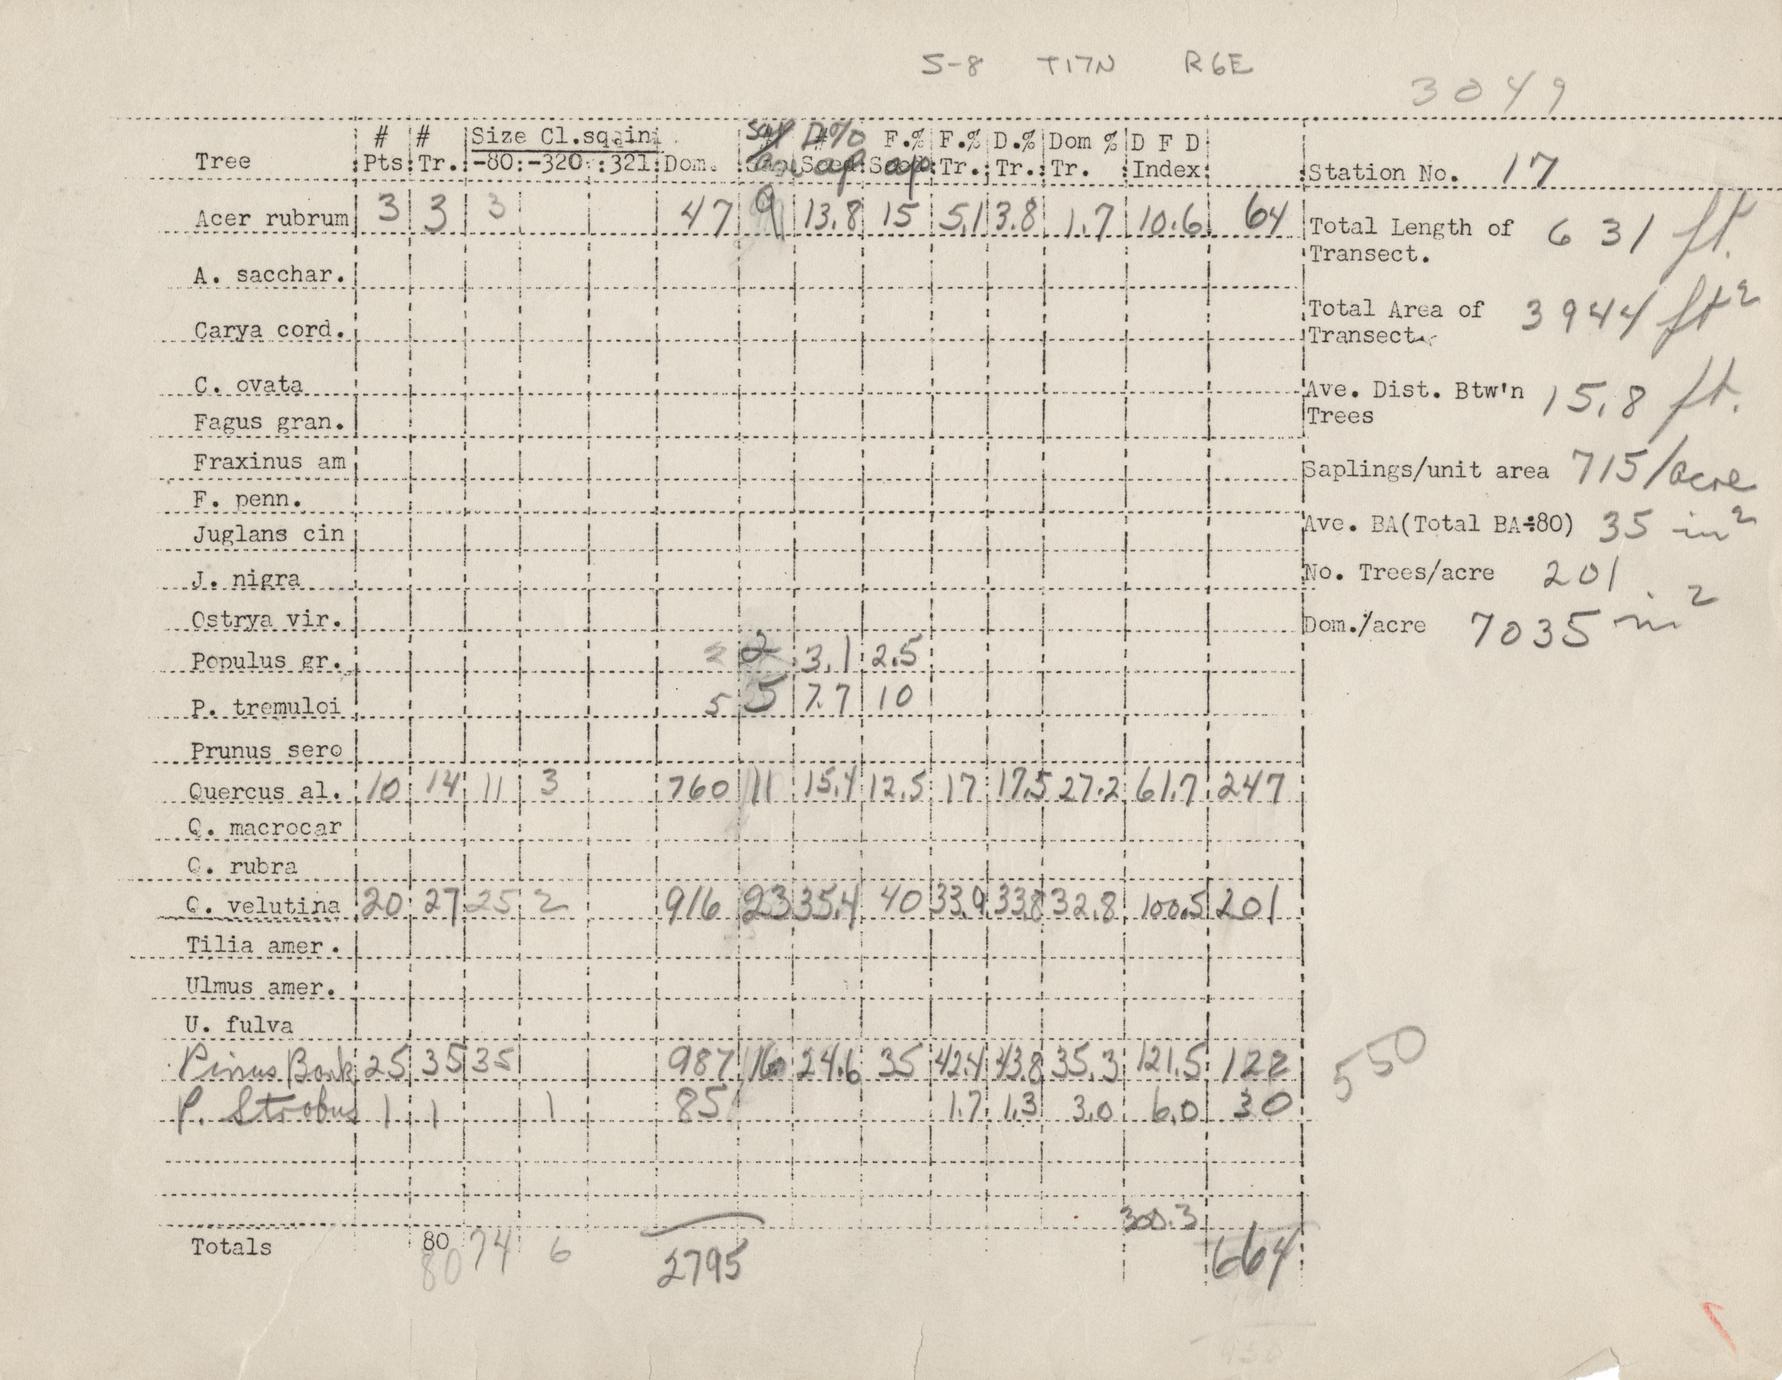 S-8 T17N R6E
3049
# # Size Cl.sq.in. D#% F.% F.% D.% Dom % D F D
Tree Pts. Tr. -80: -320: :321: Dom. Sap Sap Tr. Tr. Tr. Index
Station No. 17
Acer rubrum 3 3 3 47 9 13.8 15 5.1 3.8 1.7 10.6 64
Total Length of Transect. 631 ft.
A. sacchar.
Total Area of Transect. 3944 ft2
Carya cord.
C. ovata
Ave. Dist. Btw'n Trees 15.8 ft.
Fagus gran.
Fraxinus am
Saplings/unit area 715/acre
F. penn.
Juglans cin
Ave. BA(Total BA÷80) 35 in2
J. nigra
No. Trees/acre 201
Ostrya vir.
Dom./acre 7035 in2
Populus gr. 2 2 3.1 2.5
P. tremuloi 5 5 7.7 10
Prunus sero
Quercus al. 10 14 11 3 760 11 15.4 12.5 17 17.5 27.2 61.7 247
Q. macrocar
Q. rubra
Q. velutina 20 27 25 2 916 23 35.4 40 33.9 33.8 32.8 100.5 201
Tilia amer.
Ulmus amer.
U. fulva
Pinus Bank 25 35 35 987 16 24.6 35 42.4 43.8 35.3 121.5 122
550
P. Strobus 1 1 1 85 1.7 1.3 3.0 6.0 30
300.3
Totals 80 80 74 6 2795 664